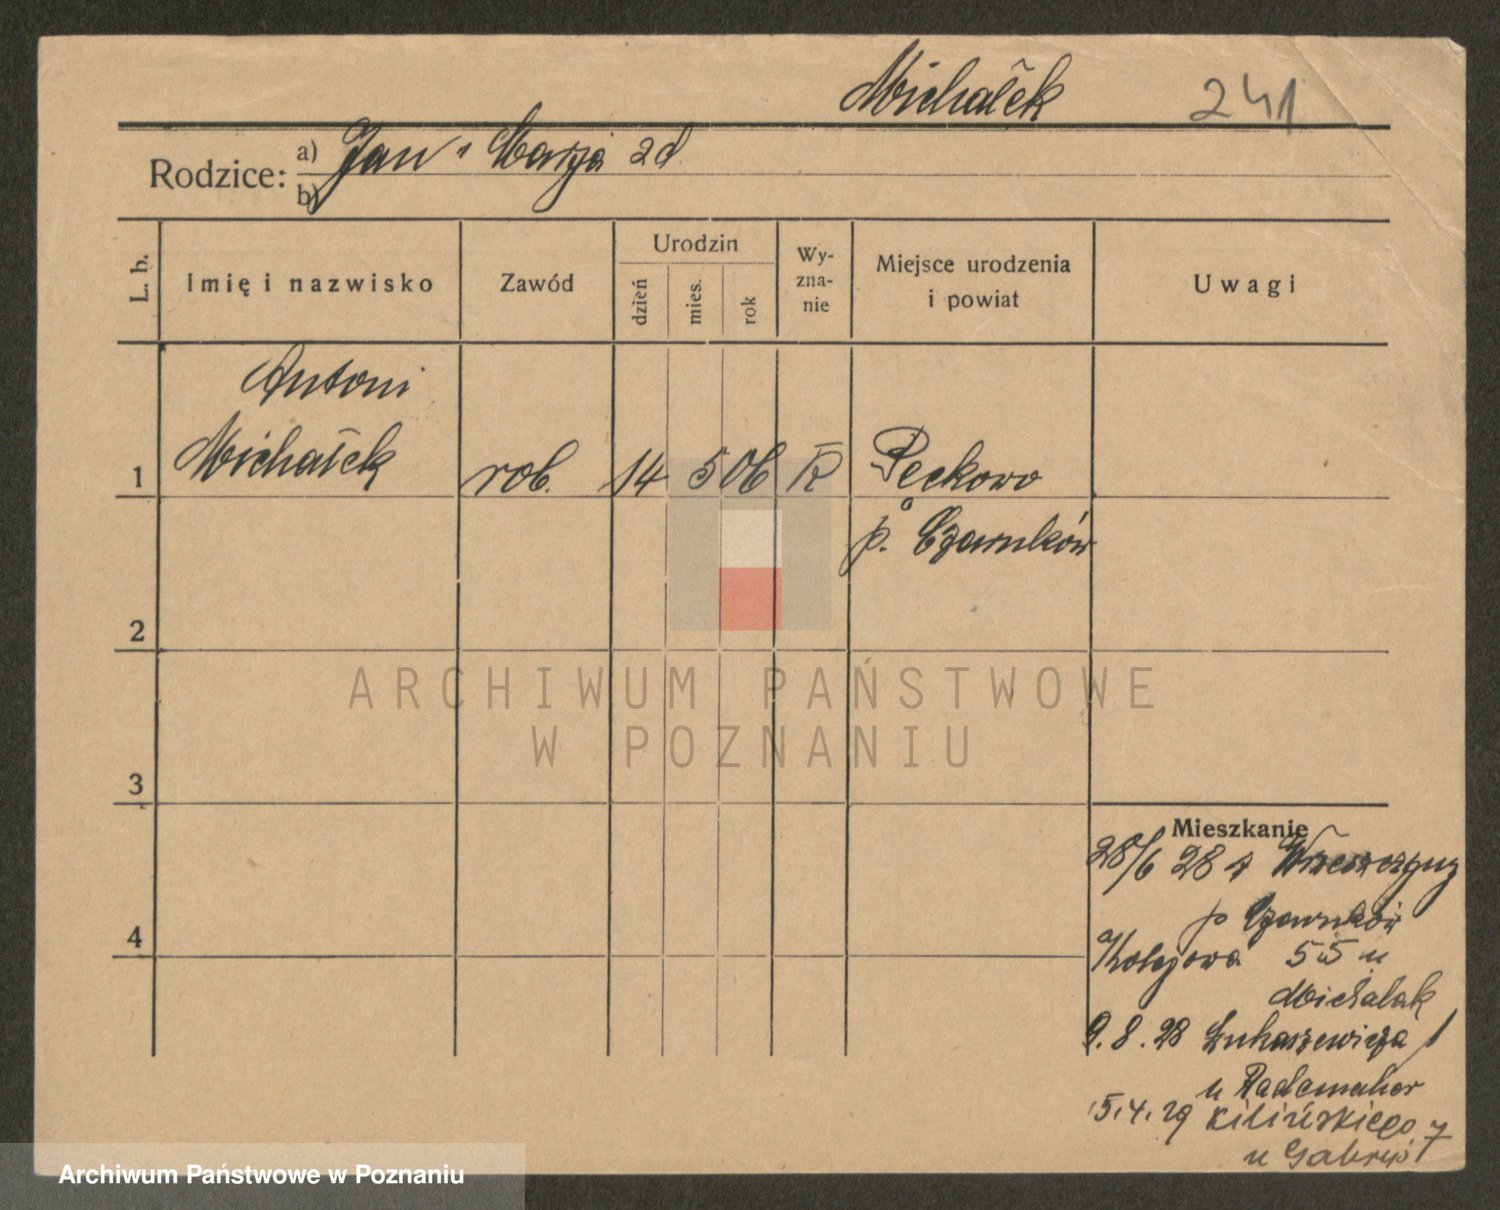 Michałek 241
Rodzice: a) Jan i Marja
b)
L. b. Imię i nazwisko Zawód Urodzin dzień mies. rok Wy-zna-nie Miejsce urodzenia i powiat Uwagi
Antoni
1 Michałek rob. 14 5 06 K Peckowo
p. Czarnków
2
3
4
Mieszkanie
28/6 28 z
p Czarnków
Kolejowa 55 u
Michalak
9. 8. 28 Łukaszewicza 1
u Rademacher
5.4.29 Kilińskiego 7
u
ARCHIWUM PAŃSTWOWE
W POZNANIU
Archiwum Państwowe w Poznaniu